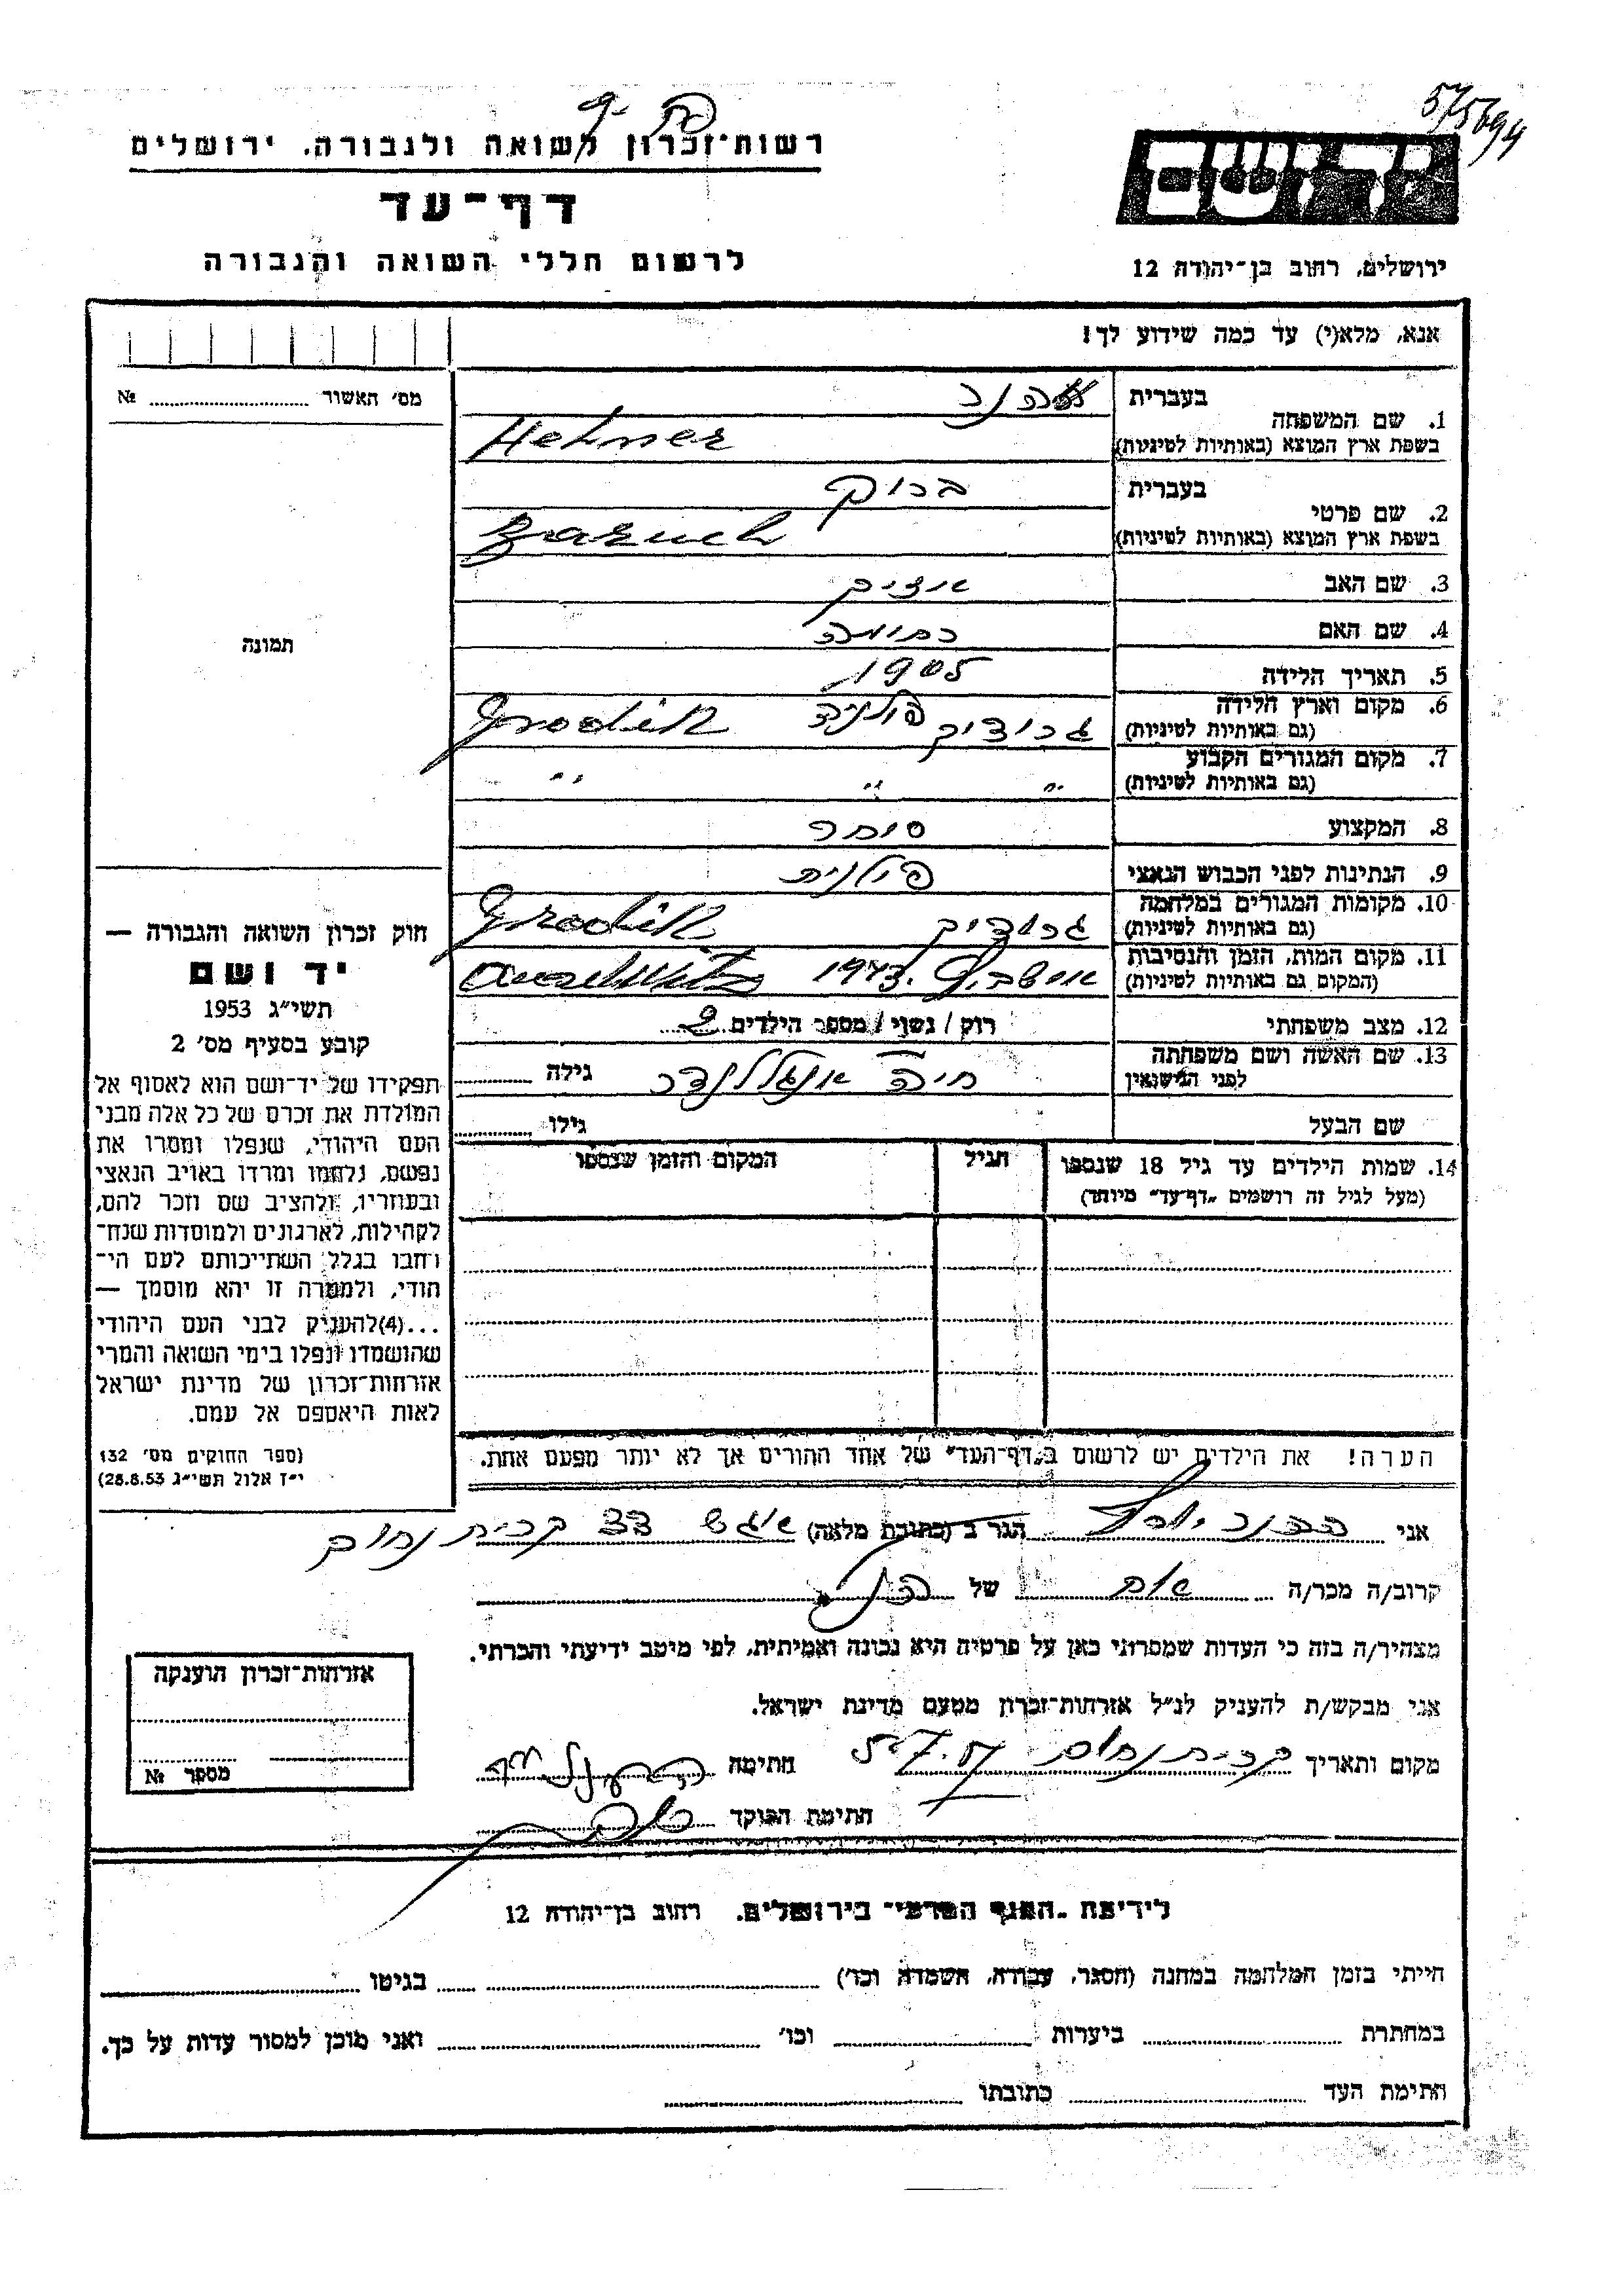 575694
רשות־זכרון לשואה ולגבורה, ירושלים
דף־עד
לרשום חללי השואה והגבורה
יד ושם
ירושלים, רחוב בן־יהודה 12
אנא, מלא(י) עד כמה שידוע לך!
מס' האשור № 
1. שם המשפחה בעברית
בשפת ארץ המוצא (באותיות לטיניות) Hehner
2. שם פרטי בעברית ברוך
בשפת ארץ המוצא (באותיות לטיניות) Baruch
3. שם האב איציק
4. שם האם
תמונה
5. תאריך הלידה 1905
6. מקום וארץ הלידה גרודיק פולניה Grodik
(גם באותיות לטיניות)
7. מקום המגורים הקבוע " " "
(גם באותיות לטיניות)
8. המקצוע סוחר
9. הנתינות לפני הכבוש הנאצי פולנית
10. מקומות המגורים במלחמה גרודיק Grodik
(גם באותיות לטיניות)
11. מקום המות, הזמן והנסיבות 1943
(המקום גם באותיות לטיניות)
12. מצב משפחתי רוק / נשוי / מספר הילדים 2
13. שם האשה ושם משפחתה חיה אנגלנדר גילה
לפני הנישואין
שם הבעל גילו
14. שמות הילדים עד גיל 18 שנספו הגיל המקום והזמן שנספו
(מעל לגיל זה רושמים "דף־עד" מיוחד)
הערה! את הילדים יש לרשום ב"דף־העד" של אחד ההורים אך לא יותר מפעם אחת.
חוק זכרון השואה והגבורה —
יד ושם
תשי"ג 1953
קובע בסעיף מס' 2
תפקידו של יד־ושם הוא לאסוף אל
המולדת את זכרם של כל אלה מבני
העם היהודי, שנפלו ומסרו את
נפשם, נלחמו ומרדו באויב הנאצי
ובעוזריו, ולהציב שם וזכר להם,
לקהילות, לארגונים ולמוסדות שנח־
רחבו בגלל השתייכותם לעם הי־
הודי, ולמטרה זו יהא מוסמך —
...(4)להעניק לבני העם היהודי
שהושמדו ונפלו בימי השואה והמרי
אזרחות־זכרון של מדינת ישראל
לאות היאספם אל עמם.
(ספר החוקים מס' 132
י"ז אלול תשי"ג 28.8.53)
אני הגר ב (כתובת מלאה) קרית נחום
קרוב/ה מכר/ה של
מצהיר/ה בזה כי העדות שמסרתי כאן על פרטיה היא נכונה ואמיתית, לפי מיטב ידיעתי והכרתי.
אני מבקש/ת להעניק לנ"ל אזרחות־זכרון מטעם מדינת ישראל.
מקום ותאריך קרית נחום חתימה
חתימת הפוקד
אזרחות־זכרון הוענקה
מספר №
לידיעת "הסניף המרכזי" בירושלים, רחוב בן־יהודה 12
הייתי בזמן המלחמה במחנה (הסגר, עבודה, השמדה וכו') בגיטו
במחתרת ביערות וכו' ואני מוכן למסור עדות על כך.
חתימת העד כתובתו